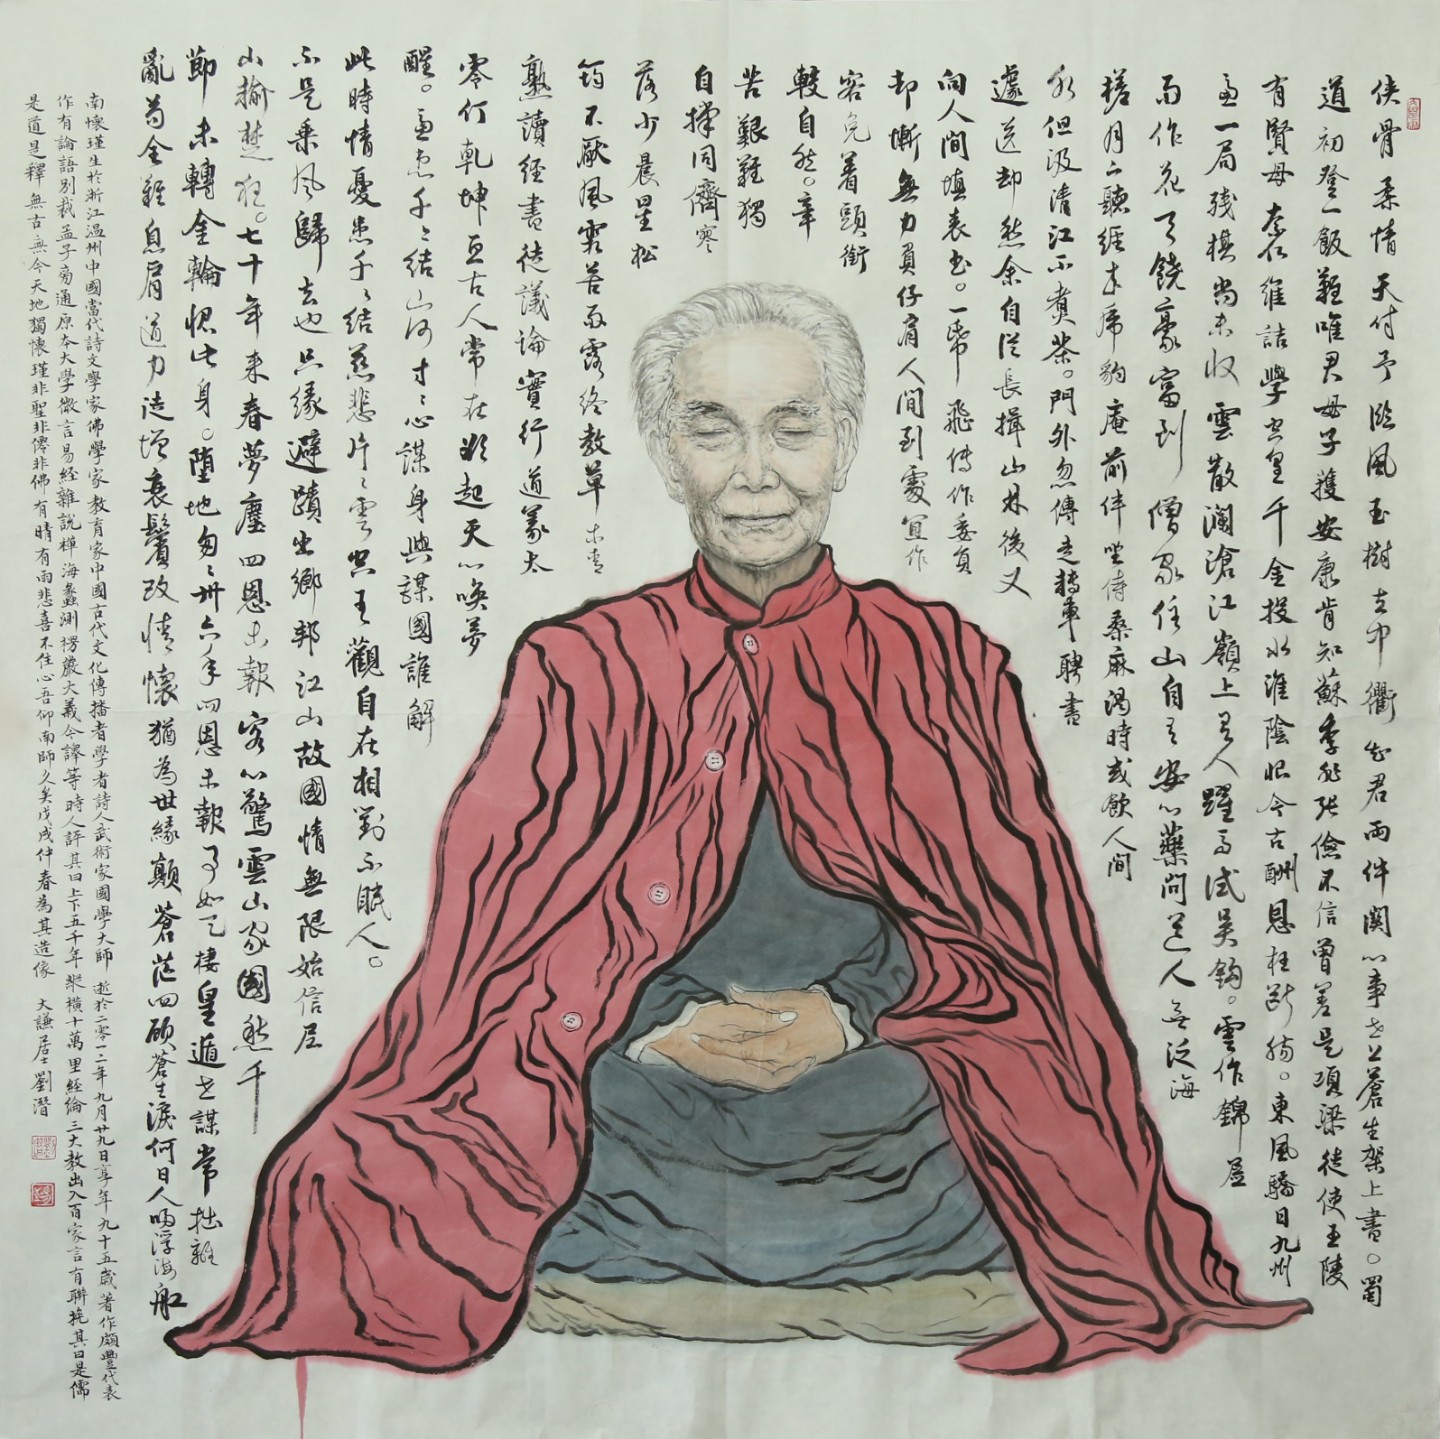 侠骨柔情天付予臨風玉樹立中衢知君兩件関心事世上蒼生架上書。蜀
道初登一飯難唯君母子獲安康肯知蘇季非張儉不信曾差是項梁徒使王陵
有賢母奈何維詰學空皇千金投水淮陰恨今古酬恩枉斷腸。東風驕日九州
憂一局殘棋尚未收雲散瀾滄江嶺上有人躍馬試吳鈎。雲作錦屏
雨作花天饒豪富到僧家住山自有安心藥問道人無泛海
槎月下聽經來席豹庵前伴坐侍桑麻渴時或飲人間
水但汲清江不煮茶。門外忽傳走轉車聘書
遽送却愁余自從長揖山林後又
向人間填表書。一幣飛傳作委員
却慚無力負仔肩人間到處宜作
客免着頭銜
較自然。辛
苦艱難獨
自撐同儕寥
落少晨星松
筠不厭風霜苦雨露終教草木青
熟讀經書徒議論實行道義太
零仃乾坤亙古人常在欲起天心喚夢
醒。憂患千々結山河寸々心謀身與謀國誰解
此時情憂患千々結慈悲片々雲空王觀自在相對不眠人。
不是乘風歸去也只緣避蹟出鄉邦江山故國情無限始信尼
山揄楚狂。七十年來春夢塵四恩未報客心驚雲山家國愁千
節未轉金輪愧此身。墮地匆々卅六年四恩未報事如天棲皇遁世謀常拙離
亂苟全難息肩道力徒增衰鬢改情懷猶為世緣顛蒼茫四顧蒼生淚何日人浮海船
南懷瑾生於浙江温州中國當代詩文學家佛學家教育家中國古代文化傳播者學者詩人武術家國學大師逝於二零一二年九月廿九日享年九十五歲著作頗豐代表
作有論語別裁孟子旁通原本大學微言易經雜說禪海蠡測楞嚴大義今譯等時人評其曰上下五千年縱橫十萬里經綸三大教出入百家言有聯挽其曰是儒
是道是釋無古無今天地獨懷瑾非聖非僊非佛有晴有雨悲喜不住心吾仰南師久矣戊戌仲春為其造像 大謙居士劉潛